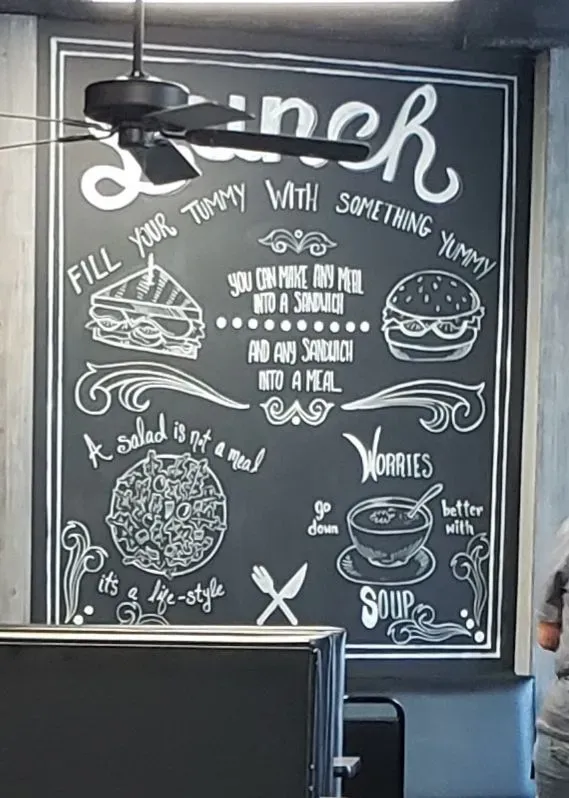 Lunch
FILL YOUR TUMMY WITH SOMETHING YUMMY
YOU CAN MAKE ANY MEAL
INTO A SANDWICH
AND ANY SANDWICH
INTO A MEAL
A salad is not a meal
it's a life-style
WORRIES
go down
better with
SOUP